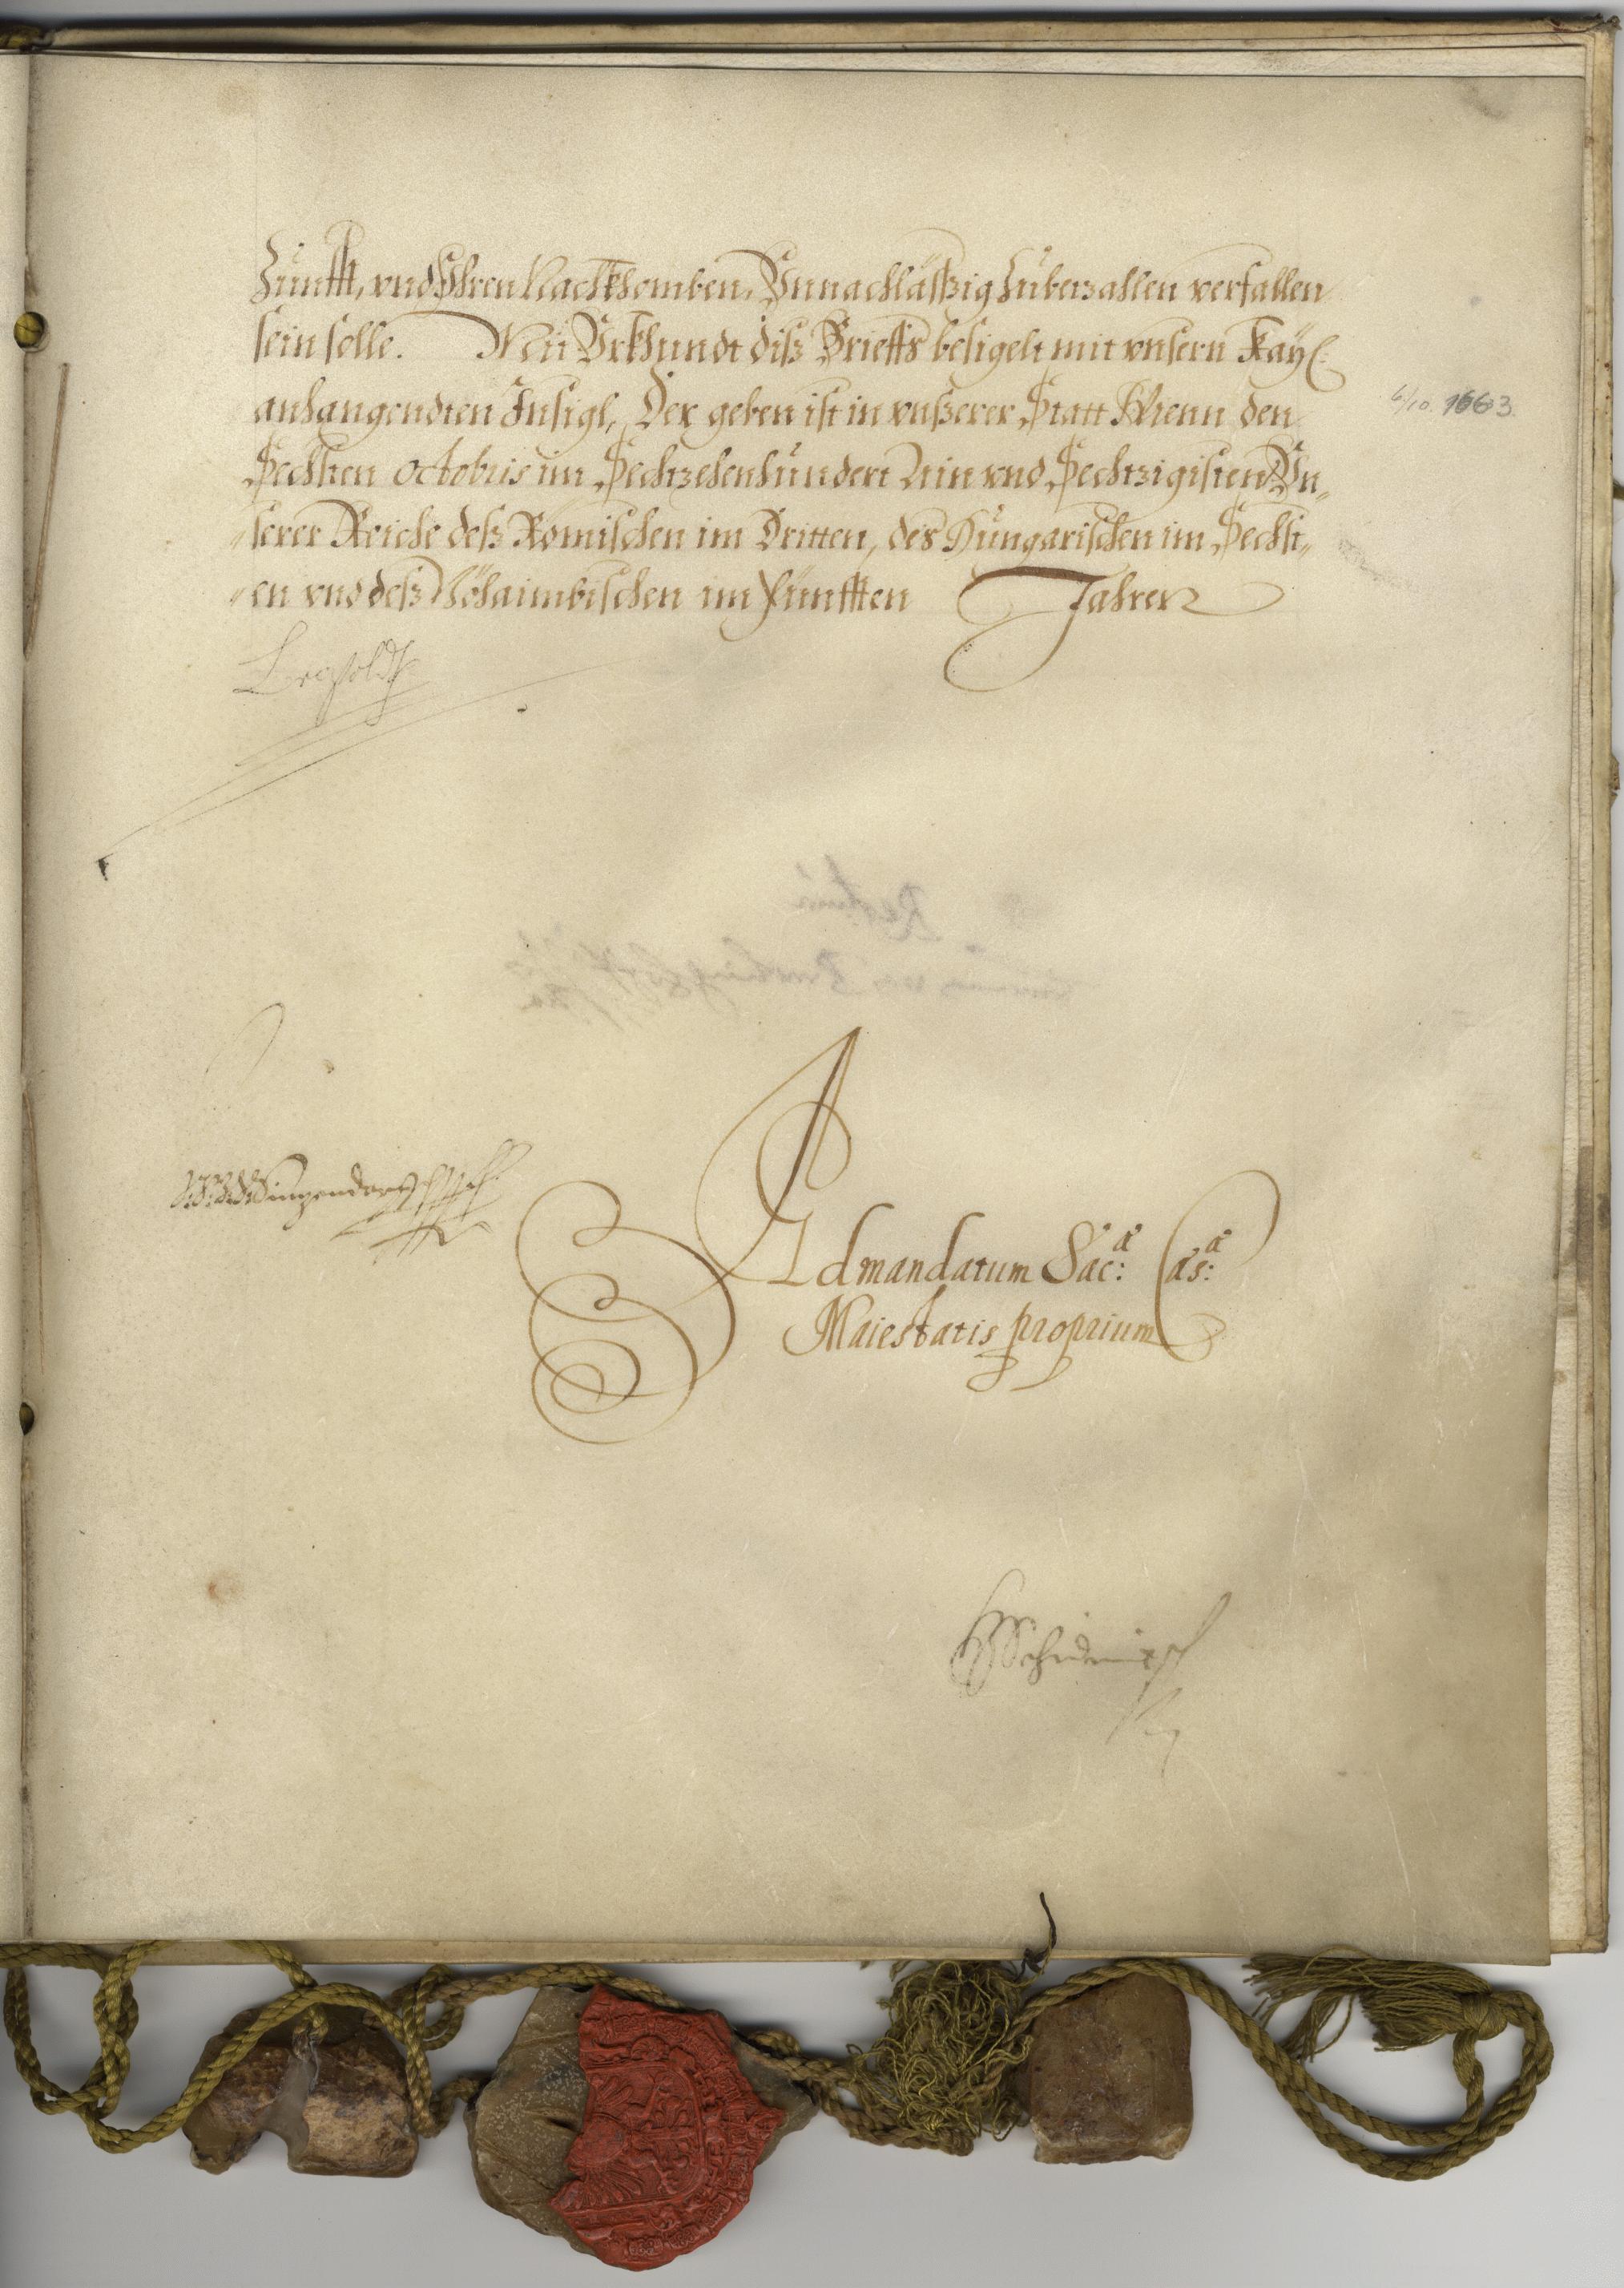 Zunfft, vnd Ihren Nachkhomben, Vnnachläßig zubezahlen verfallen
sein solle. Mit Vrkhundt diß Brieffs besigelt mit vnsern Kayl:
anhangendten Insigl, Der geben ist in vnßerer Statt Wienn den
6/10. 1663.
Sechsten octobris im Sechzehenhundert Ain vnd Sechtzigisten, Vn„
„serer Reiche deß Römischen im Dritten, des Hungarischen im Sechst„
„en vnd deß Böhaimbischen im Fünfften Jahren
Leopoldt
Sinzendorff
Ad mandatum Sac:ae Caes:ae
Maiestatis proprium